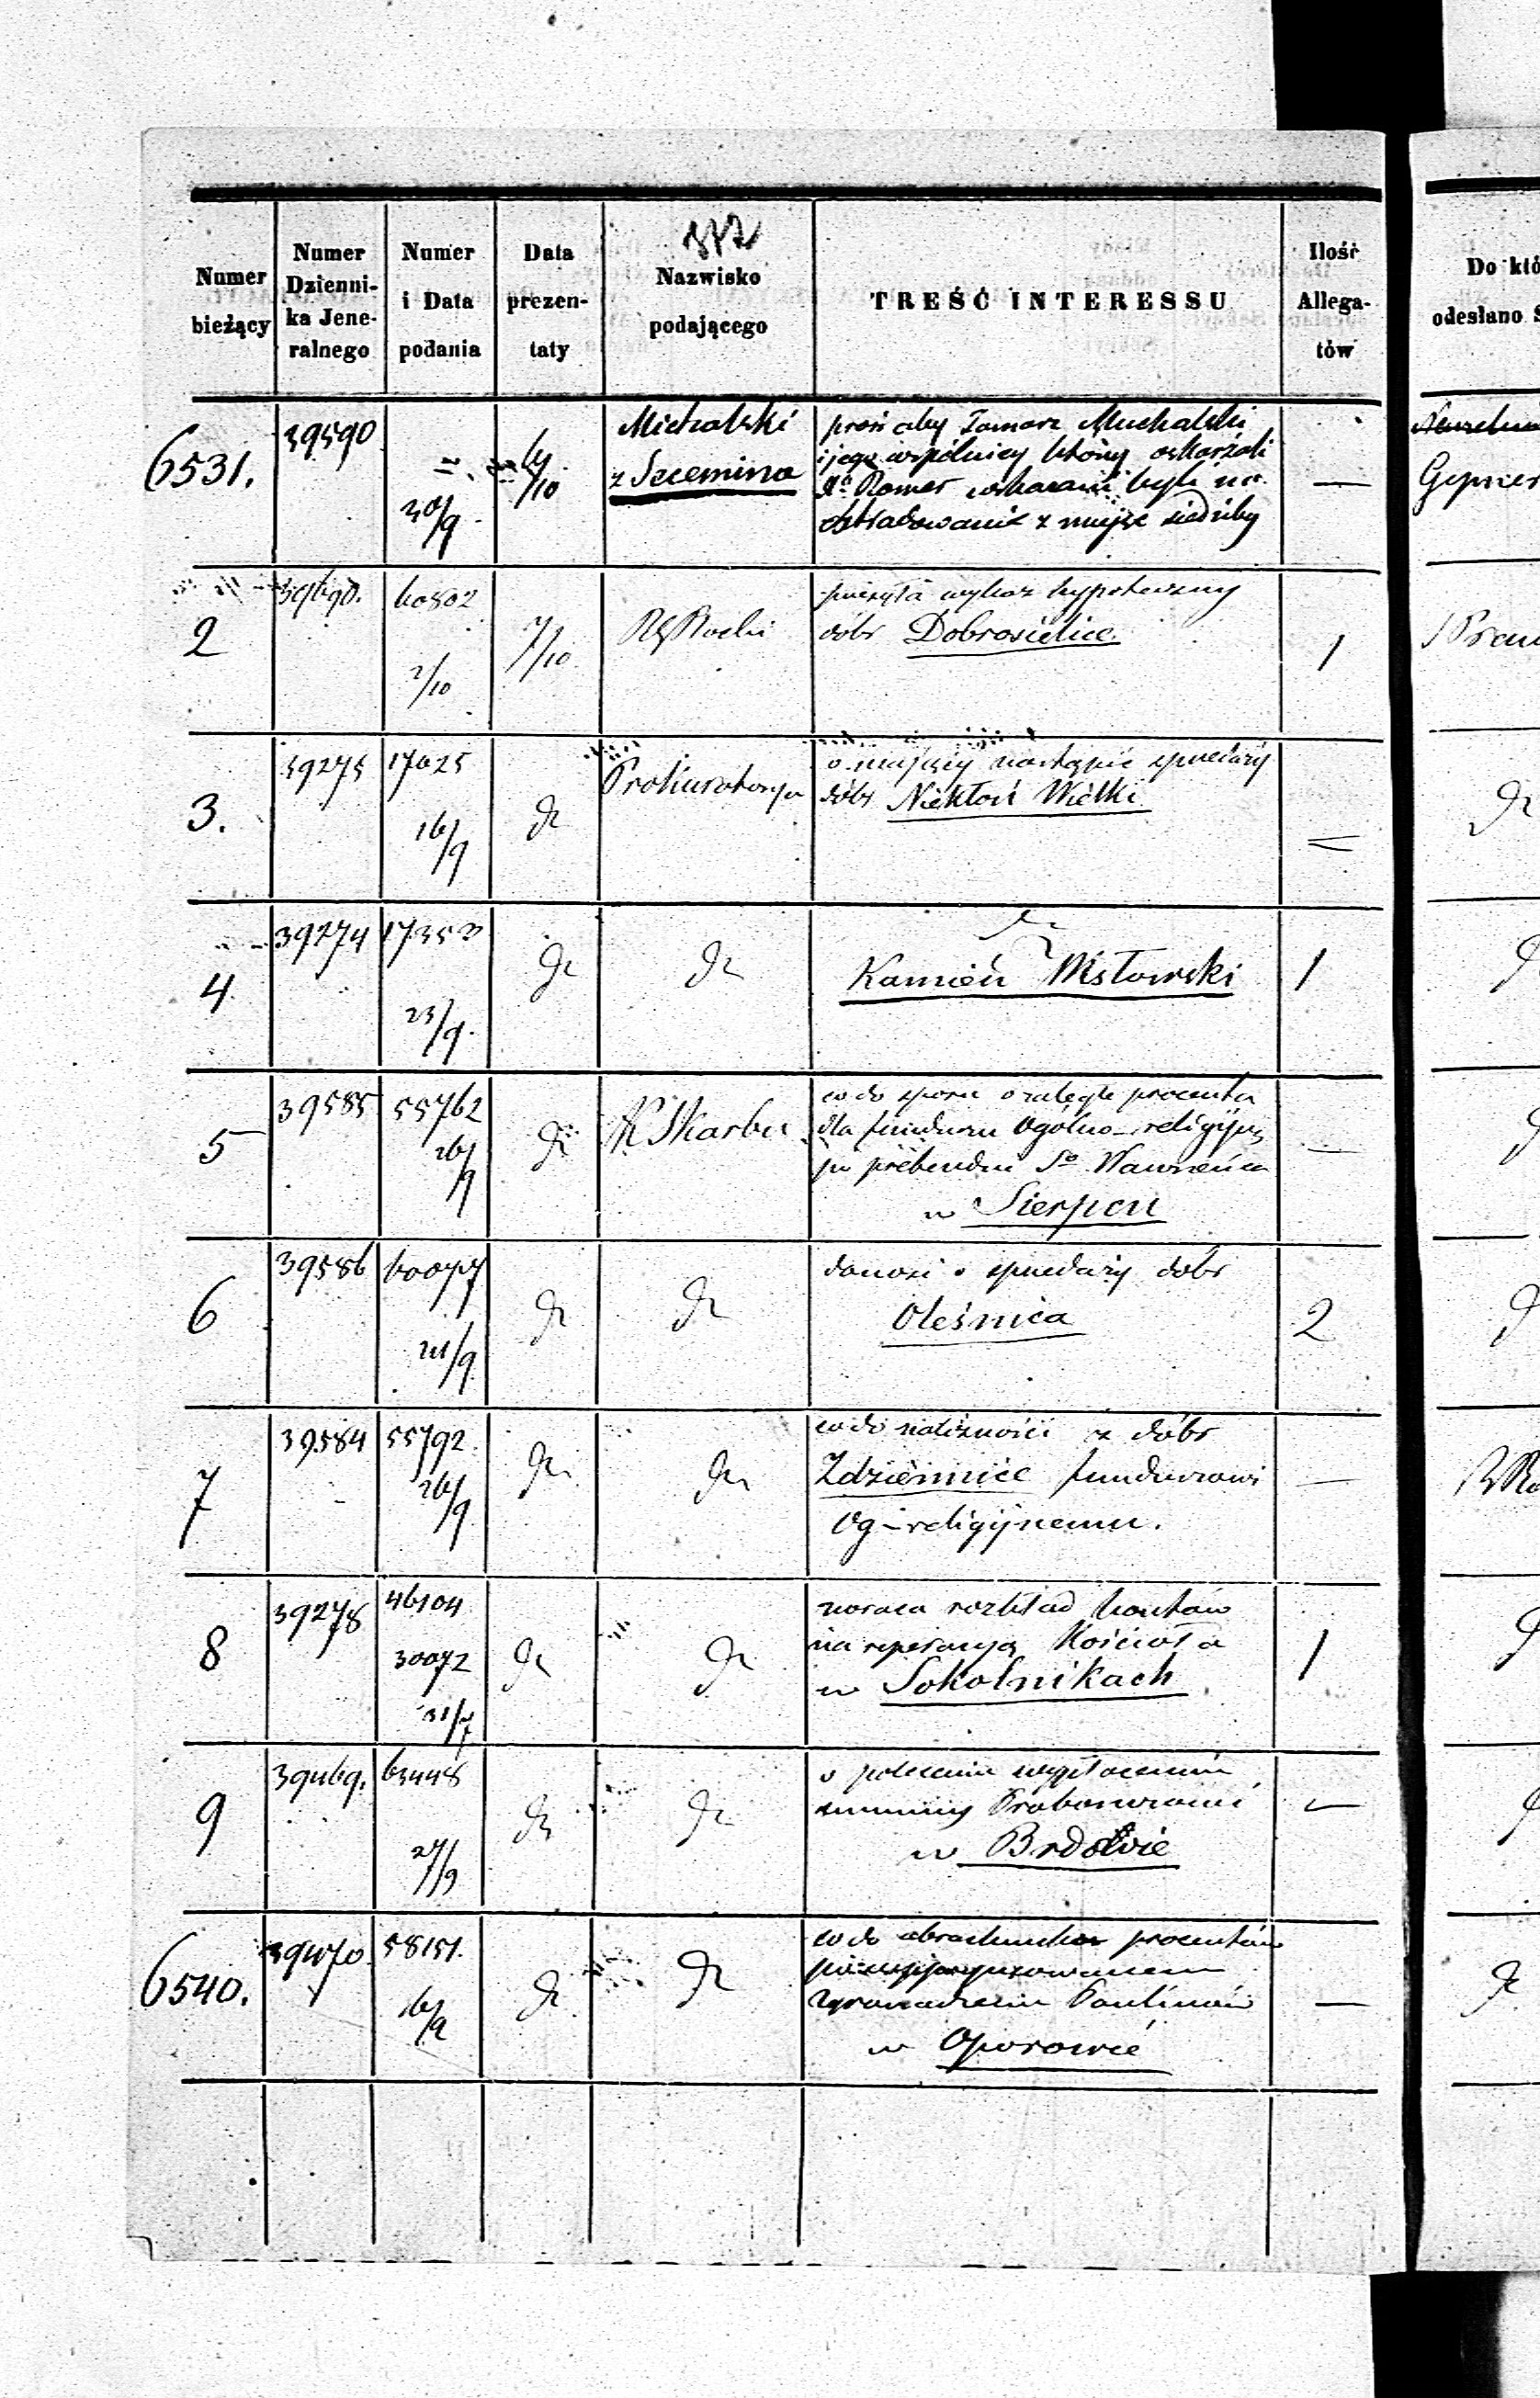 347
Numer bieżący
Numer Dzienni-ka Jene-ralnego
Numer i Data podania
Data prezen-taty
Nazwisko podającego
TREŚĆ INTERESSU
Ilość Allega-tów
Do któ
odesłano S
6531.
39590
30/9
6/10
Michalski
z Szczemina
prosi aby Tomasz Muchalski
i jego wspólnicy którzy oskarżali
Romer wskazani byli na
z miejsc siedziby
—
Gepner
2
39690.
60802
2/10
7/10
przesyła wykaz hypoteczny
dóbr Dobrosielice.
1
3.
39275
17025
16/9
dt
Prokuratorya
o mającey nastąpić sprzedaży
dóbr Niekłoń Wielki
=
dt
4
39274
23/9.
dt
dt
dt
Kamień Mstowski
1
5
39585
55762
26/9
dt
K Skarbu
co do sporu o zaległe procenta
dla funduszu Ogólno-religijn
po prebendzie So Wawrzeńca
w Sierpcu
—
6
39586
60077
21/9
dt
dt
donosi o sprzedaży dóbr
Oleśnica
2
7
39584
55792
26/9
dt
dt
co do należności z dóbr
Zdziennice funduszowi
Og-religijnemu.
—
8
39278
46104
30072
31/7
dt
dt
zwraca rozkład kosztów
na reperacyą Kościoła
w Sokolnikach
1
9
39469.
63448
27/9
dt
dt
o poleceniu wypłacenia
summy Probosczowi
w Brdowie
—
6540.
39470.
58151.
16/9
dt
dt
co do obrachunków procentów
zgromadzeniu Paulinów
w Oporowie
—
dt